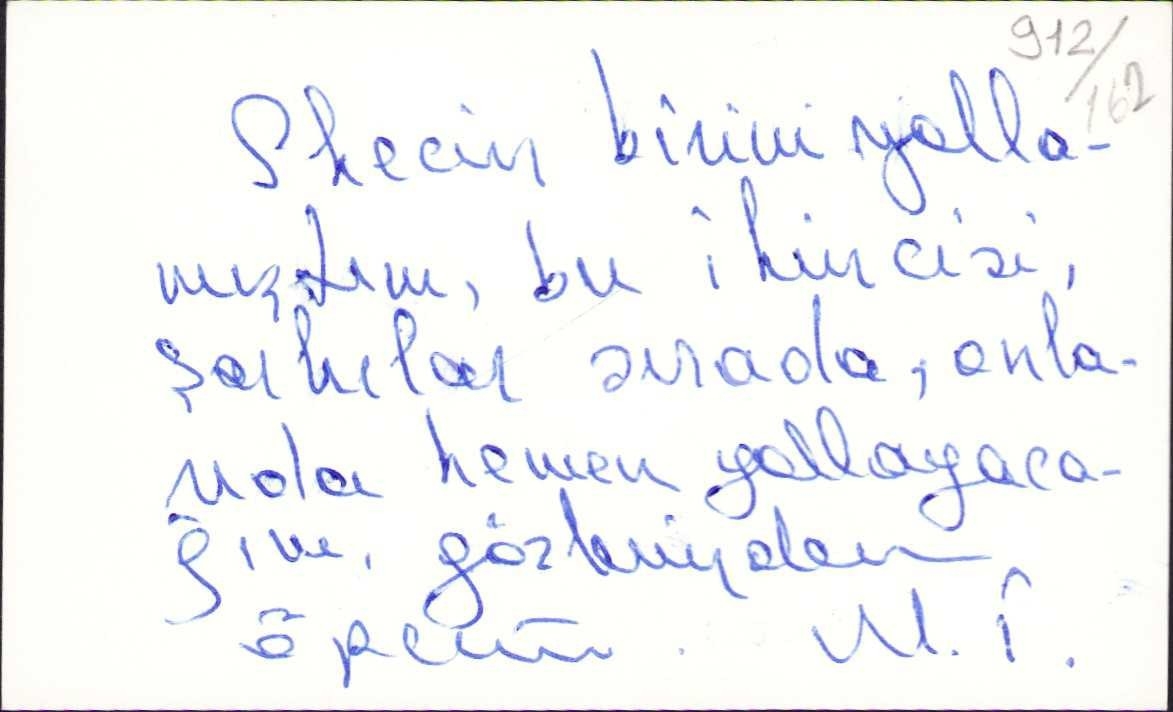 912/162
Skecin birini yolla-
mıştım, bu ikincisi,
şarkılar sırada, onla-
rıda hemen yollayaca-
ğım, gözlerinden
öperim. M. İ.